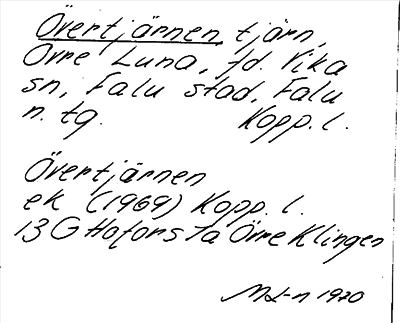 Övertjärnen, tjärn,
Övre Luna, fd. Vika
sn, Falu stad, Falu
n. tg. Kopp. l.
Övertjärnen
ek (1969) Kopp. l.
13 G Hofors 7a Övre Klingen
1970